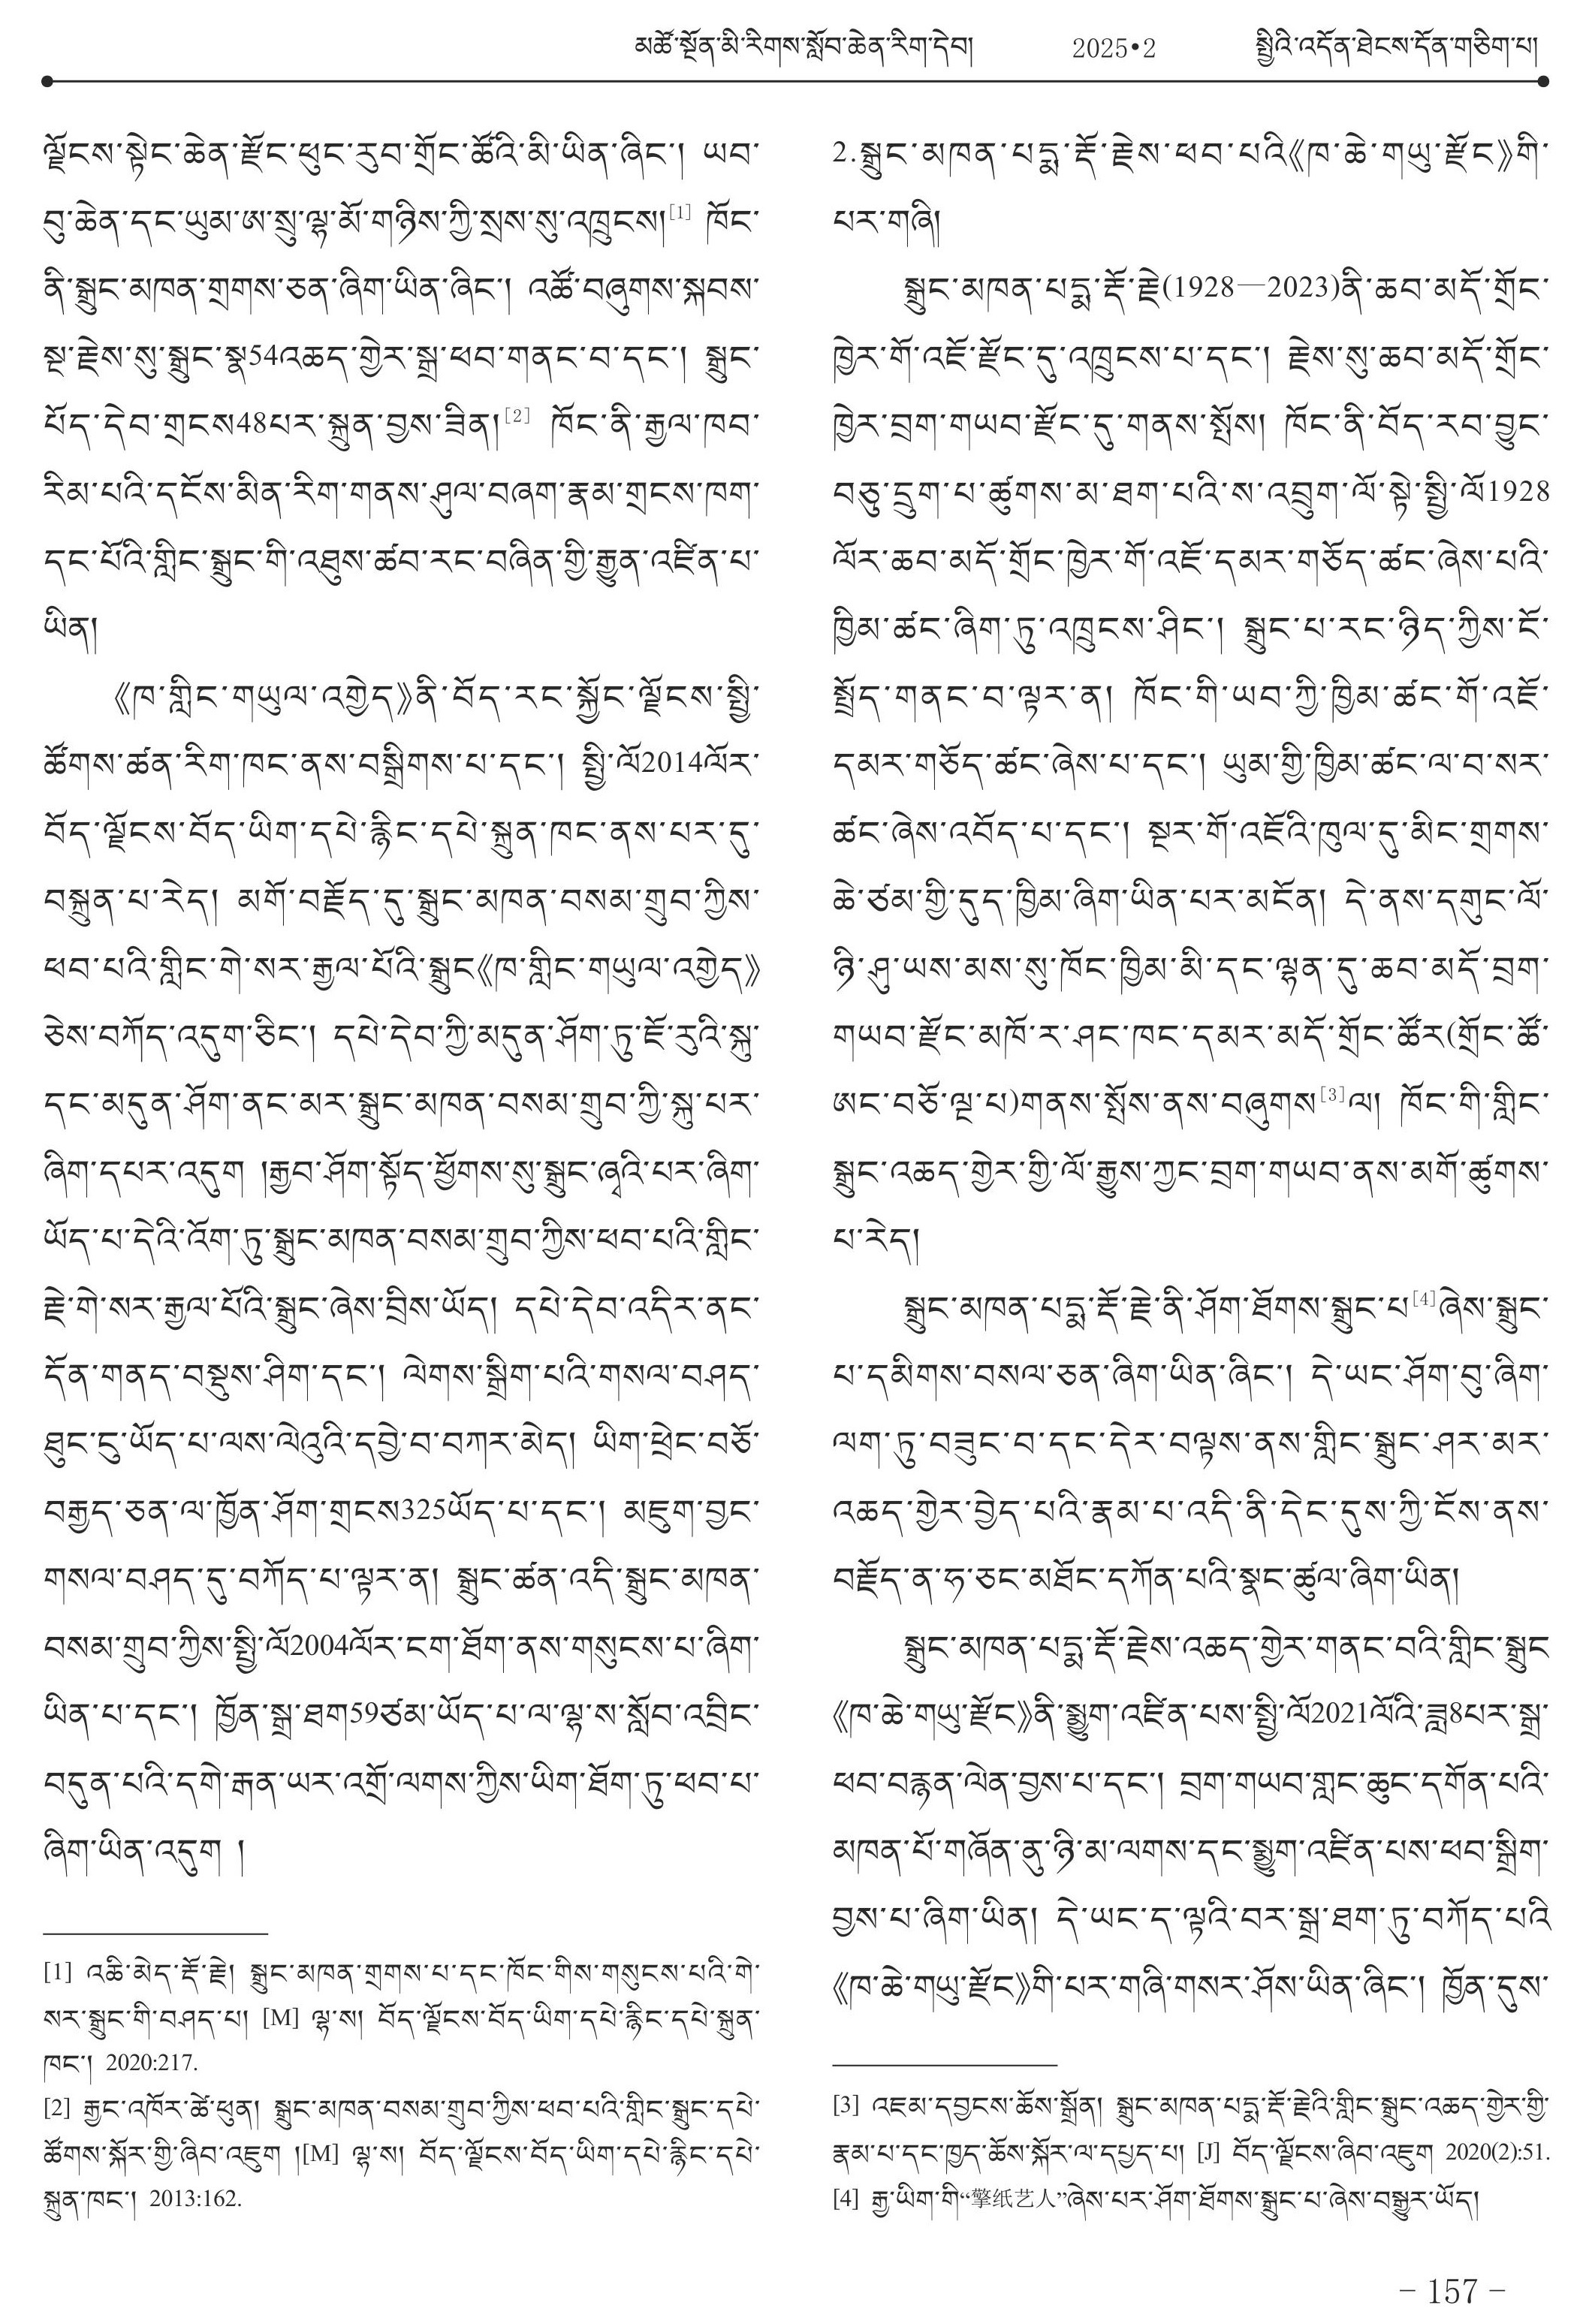 མཚོ་སྔོན་མི་རིགས་སློབ་ཆེན་རིག་དེབ། 2025•2 སྤྱིའི་འདོན་ཐེངས་དོན་གཅིག་པ།
ལྗོངས་སྟེང་ཆེན་རྫོང་ཕུང་རུབ་གྲོང་ཚོའི་མི་ཡིན་ཞིང་། ཡབ་
བུ་ཆེན་དང་ཡུམ་ཨ་སྲུ་ལྷ་མོ་གཉིས་ཀྱི་སྲས་སུ་འཁྲུངས།[1] ཁོང་
ནི་སྒྲུང་མཁན་གྲགས་ཅན་ཞིག་ཡིན་ཞིང་། འཚོ་བཞུགས་སྐབས་
སྔ་རྗེས་སུ་སྒྲུང་སྣ54འཆད་གྱེར་སྒྲ་ཕབ་གནང་བ་དང་། སྒྲུང་
པོད་དེབ་གྲངས48པར་སྐྲུན་བྱས་ཟིན།[2] ཁོང་ནི་རྒྱལ་ཁབ་
རིམ་པའི་དངོས་མིན་རིག་གནས་ཤུལ་བཞག་རྣམ་གྲངས་ཁག་
དང་པོའི་གླིང་སྒྲུང་གི་འཐུས་ཚབ་རང་བཞིན་གྱི་རྒྱུན་འཛིན་པ་
ཡིན།
《ཁ་གླིང་གཡུལ་འགྱེད》ནི་བོད་རང་སྐྱོང་ལྗོངས་སྤྱི་
ཚོགས་ཚན་རིག་ཁང་ནས་བསྒྲིགས་པ་དང་། སྤྱི་ལོ2014ལོར་
བོད་ལྗོངས་བོད་ཡིག་དཔེ་རྙིང་དཔེ་སྐྲུན་ཁང་ནས་པར་དུ་
བསྐྲུན་པ་རེད། མགོ་བརྗོད་དུ་སྒྲུང་མཁན་བསམ་གྲུབ་ཀྱིས་
ཕབ་པའི་གླིང་གེ་སར་རྒྱལ་པོའི་སྒྲུང《ཁ་གླིང་གཡུལ་འགྱེད》
ཅེས་བཀོད་འདུག་ཅིང་། དཔེ་དེབ་ཀྱི་མདུན་ཤོག་ཏུ་ཇོ་རུའི་སྐུ་
དང་མདུན་ཤོག་ནང་མར་སྒྲུང་མཁན་བསམ་གྲུབ་ཀྱི་སྐུ་པར་
ཞིག་དཔར་འདུག །རྒྱབ་ཤོག་སྟོད་ཕྱོགས་སུ་སྒྲུང་ཞྭའི་པར་ཞིག་
ཡོད་པ་དེའི་འོག་ཏུ་སྒྲུང་མཁན་བསམ་གྲུབ་ཀྱིས་ཕབ་པའི་གླིང་
རྗེ་གེ་སར་རྒྱལ་པོའི་སྒྲུང་ཞེས་བྲིས་ཡོད། དཔེ་དེབ་འདིར་ནང་
དོན་གནད་བསྡུས་ཤིག་དང་། ལེགས་སྒྲིག་པའི་གསལ་བཤད་
ཐུང་ངུ་ཡོད་པ་ལས་ལེའུའི་དབྱེ་བ་བཀར་མེད། ཡིག་ཕྲེང་བཅོ་
བརྒྱད་ཅན་ལ་ཁྱོན་ཤོག་གྲངས325ཡོད་པ་དང་། མཇུག་བྱང་
གསལ་བཤད་དུ་བཀོད་པ་ལྟར་ན། སྒྲུང་ཚན་འདི་སྒྲུང་མཁན་
བསམ་གྲུབ་ཀྱིས་སྤྱི་ལོ2004ལོར་ངག་ཐོག་ནས་གསུངས་པ་ཞིག་
ཡིན་པ་དང་། ཁྱོན་སྒྲ་ཐག59ཙམ་ཡོད་པ་ལ་ལྷ་ས་སློབ་འབྲིང་
བདུན་པའི་དགེ་རྒན་ཡར་འགྲོ་ལགས་ཀྱིས་ཡིག་ཐོག་ཏུ་ཕབ་པ་
ཞིག་ཡིན་འདུག །
[1] འཆི་མེད་རྡོ་རྗེ། སྒྲུང་མཁན་གྲགས་པ་དང་ཁོང་གིས་གསུངས་པའི་གེ་
སར་སྒྲུང་གི་བཤད་པ། [M] ལྷ་ས། བོད་ལྗོངས་བོད་ཡིག་དཔེ་རྙིང་དཔེ་སྐྲུན་
ཁང་། 2020:217.
[2] རྒྱང་འཁོར་ཚེ་ཕུན། སྒྲུང་མཁན་བསམ་གྲུབ་ཀྱིས་ཕབ་པའི་གླིང་སྒྲུང་དཔེ་
ཚོགས་སྐོར་གྱི་ཞིབ་འཇུག །[M] ལྷ་ས། བོད་ལྗོངས་བོད་ཡིག་དཔེ་རྙིང་དཔེ་
སྐྲུན་ཁང་། 2013:162.
2.སྒྲུང་མཁན་པདྨ་རྡོ་རྗེས་ཕབ་པའི《ཁ་ཆེ་གཡུ་རྫོང》གི་
པར་གཞི།
སྒྲུང་མཁན་པདྨ་རྡོ་རྗེ(1928—2023)ནི་ཆབ་མདོ་གྲོང་
ཁྱེར་གོ་འཇོ་རྫོང་དུ་འཁྲུངས་པ་དང་། རྗེས་སུ་ཆབ་མདོ་གྲོང་
ཁྱེར་བྲག་གཡབ་རྫོང་དུ་གནས་སྤོས། ཁོང་ནི་བོད་རབ་བྱུང་
བཅུ་དྲུག་པ་ཚུགས་མ་ཐག་པའི་ས་འབྲུག་ལོ་སྟེ་སྤྱི་ལོ1928
ལོར་ཆབ་མདོ་གྲོང་ཁྱེར་གོ་འཇོ་དམར་གཅོད་ཚང་ཞེས་པའི་
ཁྱིམ་ཚང་ཞིག་ཏུ་འཁྲུངས་ཤིང་། སྒྲུང་པ་རང་ཉིད་ཀྱིས་ངོ་
སྤྲོད་གནང་བ་ལྟར་ན། ཁོང་གི་ཡབ་ཀྱི་ཁྱིམ་ཚང་གོ་འཇོ་
དམར་གཅོད་ཚང་ཞེས་པ་དང་། ཡུམ་གྱི་ཁྱིམ་ཚང་ལ་བ་སར་
ཚང་ཞེས་འབོད་པ་དང་། སྔར་གོ་འཇོའི་ཁུལ་དུ་མིང་གྲགས་
ཆེ་ཙམ་གྱི་དུད་ཁྱིམ་ཞིག་ཡིན་པར་མངོན། དེ་ནས་དགུང་ལོ་
ཉི་ཤུ་ཡས་མས་སུ་ཁོང་ཁྱིམ་མི་དང་ལྷན་དུ་ཆབ་མདོ་བྲག་
གཡབ་རྫོང་མཁོ་ར་ཤང་ཁང་དམར་མདོ་གྲོང་ཚོར(གྲོང་ཚོ་
ཨང་བཅོ་ལྔ་པ)གནས་སྤོས་ནས་བཞུགས[3]ལ། ཁོང་གི་གླིང་
སྒྲུང་འཆད་གྱེར་གྱི་ལོ་རྒྱུས་ཀྱང་བྲག་གཡབ་ནས་མགོ་ཚུགས་
པ་རེད།
སྒྲུང་མཁན་པདྨ་རྡོ་རྗེ་ནི་ཤོག་ཐོགས་སྒྲུང་པ[4]ཞེས་སྒྲུང་
པ་དམིགས་བསལ་ཅན་ཞིག་ཡིན་ཞིང་། དེ་ཡང་ཤོག་བུ་ཞིག་
ལག་ཏུ་བཟུང་བ་དང་དེར་བལྟས་ནས་གླིང་སྒྲུང་ཤར་མར་
འཆད་གྱེར་བྱེད་པའི་རྣམ་པ་འདི་ནི་དེང་དུས་ཀྱི་ངོས་ནས་
བརྗོད་ན་ཧ་ཅང་མཐོང་དཀོན་པའི་སྣང་ཚུལ་ཞིག་ཡིན།
སྒྲུང་མཁན་པདྨ་རྡོ་རྗེས་འཆད་གྱེར་གནང་བའི་གླིང་སྒྲུང
《ཁ་ཆེ་གཡུ་རྫོང》ནི་སྨྱུག་འཛིན་པས་སྤྱི་ལོ2021ལོའི་ཟླ8པར་སྒྲ་
ཕབ་བརྙན་ལེན་བྱས་པ་དང་། བྲག་གཡབ་གླང་ཆུང་དགོན་པའི་
མཁན་པོ་གཞོན་ནུ་ཉི་མ་ལགས་དང་སྨྱུག་འཛིན་པས་ཕབ་སྒྲིག་
བྱས་པ་ཞིག་ཡིན། དེ་ཡང་ད་ལྟའི་བར་སྒྲ་ཐག་ཏུ་བཀོད་པའི
《ཁ་ཆེ་གཡུ་རྫོང》གི་པར་གཞི་གསར་ཤོས་ཡིན་ཞིང་། ཁྱོན་དུས་
[3] འཇམ་དབྱངས་ཆོས་སྒྲོན། སྒྲུང་མཁན་པདྨ་རྡོ་རྗེའི་གླིང་སྒྲུང་འཆད་གྱེར་གྱི་
རྣམ་པ་དང་ཁྱད་ཆོས་སྐོར་ལ་དཔྱད་པ། [J] བོད་ལྗོངས་ཞིབ་འཇུག 2020(2):51.
[4] རྒྱ་ཡིག་གི“擎纸艺人”ཞེས་པར་ཤོག་ཐོགས་སྒྲུང་པ་ཞེས་བསྒྱུར་ཡོད།
– 157 –